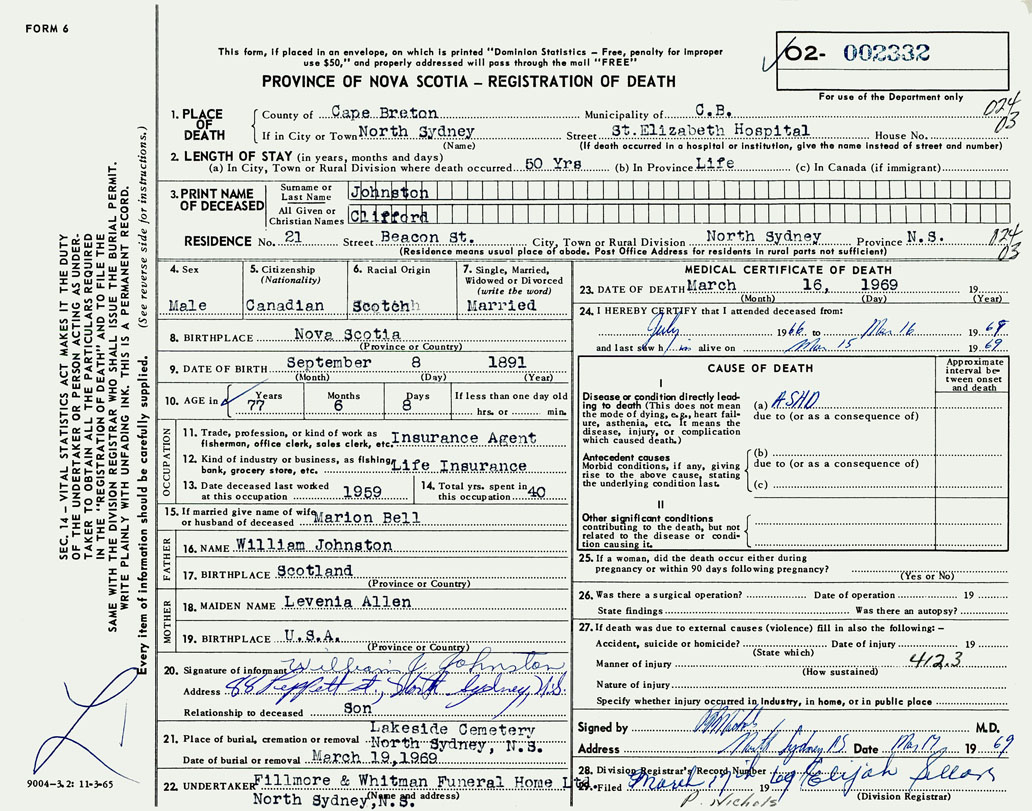 FORM 6
This form, if placed in an envelope, on which is printed "Dominion Statistics – Free, penalty for improper
use $50," and properly addressed will pass through the mail "FREE"
PROVINCE OF NOVA SCOTIA – REGISTRATION OF DEATH
02- 002332
For use of the Department only
024
03
1. PLACE OF DEATH
County of Cape Breton Municipality of C.B.
If in City or Town North Sydney Street St.Elizabeth Hospital House No.
(Name) (If death occurred in a hospital or institution, give the name instead of street and number)
2. LENGTH OF STAY (in years, months and days)
(a) In City, Town or Rural Division where death occurred 50 Yrs (b) In Province Life (c) In Canada (if immigrant)
3. PRINT NAME OF DECEASED
Surname or Last Name Johnston
All Given or Christian Names Clifford
RESIDENCE No. 21 Street Beacon St. City, Town or Rural Division North Sydney Province N.S.
(Residence means usual place of abode. Post Office Address for residents in rural parts not sufficient)
024
03
4. Sex Male
5. Citizenship (Nationality) Canadian
6. Racial Origin Scotch
7. Single, Married, Widowed or Divorced (write the word) Married
8. BIRTHPLACE Nova Scotia
(Province or Country)
9. DATE OF BIRTH September 8 1891
(Month) (Day) (Year)
10. AGE in Years 77 Months 6 Days 8 If less than one day old hrs. or min.
OCCUPATION
11. Trade, profession, or kind of work as fisherman, office clerk, sales clerk, etc. Insurance Agent
12. Kind of industry or business, as fishing, bank, grocery store, etc. Life Insurance
13. Date deceased last worked at this occupation 1959
14. Total yrs. spent in this occupation 40
15. If married give name of wife or husband of deceased Marion Bell
FATHER
16. NAME William Johnston
17. BIRTHPLACE Scotland
(Province or Country)
MOTHER
18. MAIDEN NAME Levenia Allen
19. BIRTHPLACE U.S.A.
(Province or Country)
20. Signature of informant William J. Johnston
Address 88 Peppett St., North Sydney, N.S.
Relationship to deceased Son
21. Place of burial, cremation or removal Lakeside Cemetery
North Sydney, N.S.
Date of burial or removal March 19,1969
22. UNDERTAKER Fillmore & Whitman Funeral Home Ltd
(Name and address)
North Sydney,N.S.
MEDICAL CERTIFICATE OF DEATH
23. DATE OF DEATH March 16, 1969 19
(Month) (Day) (Year)
24. I HEREBY CERTIFY that I attended deceased from:
July 1966 to Mar 16 1969
and last saw him alive on Mar 15 1969
CAUSE OF DEATH
Approximate interval between onset and death
I
Disease or condition directly leading to death (This does not mean the mode of dying, e.g., heart failure, asthenia, etc. It means the disease, injury, or complication which caused death.)
(a) ASHD
due to (or as a consequence of)
Antecedent causes
Morbid conditions, if any, giving rise to the above cause, stating the underlying condition last.
(b)
due to (or as a consequence of)
(c)
II
Other significant conditions
contributing to the death, but not related to the disease or condition causing it.
25. If a woman, did the death occur either during pregnancy or within 90 days following pregnancy?
(Yes or No)
26. Was there a surgical operation? Date of operation 19
State findings Was there an autopsy?
27. If death was due to external causes (violence) fill in also the following: –
Accident, suicide or homicide? Date of injury 19
(State which)
Manner of injury 412.3
(How sustained)
Nature of injury
Specify whether injury occurred in Industry, in home, or in public place
Signed by M.D.
Address North Sydney NS. Date Mar 17 1969
28. Division Registrar's Record Number
29. Filed March 19 Elijah Sellars
(Division Registrar)
P. Nichols
SEC. 14 – VITAL STATISTICS ACT MAKES IT THE DUTY
OF THE UNDERTAKER OR PERSON ACTING AS UNDER-
TAKER TO OBTAIN ALL THE PARTICULARS REQUIRED
IN THE "REGISTRATION OF DEATH" AND TO FILE THE
SAME WITH THE DIVISION REGISTRAR WHO SHALL ISSUE THE BURIAL PERMIT.
WRITE PLAINLY WITH UNFADING INK. THIS IS A PERMANENT RECORD.
Every item of information should be carefully supplied. (See reverse side for instructions.)
9004-3.2: 11-3-65